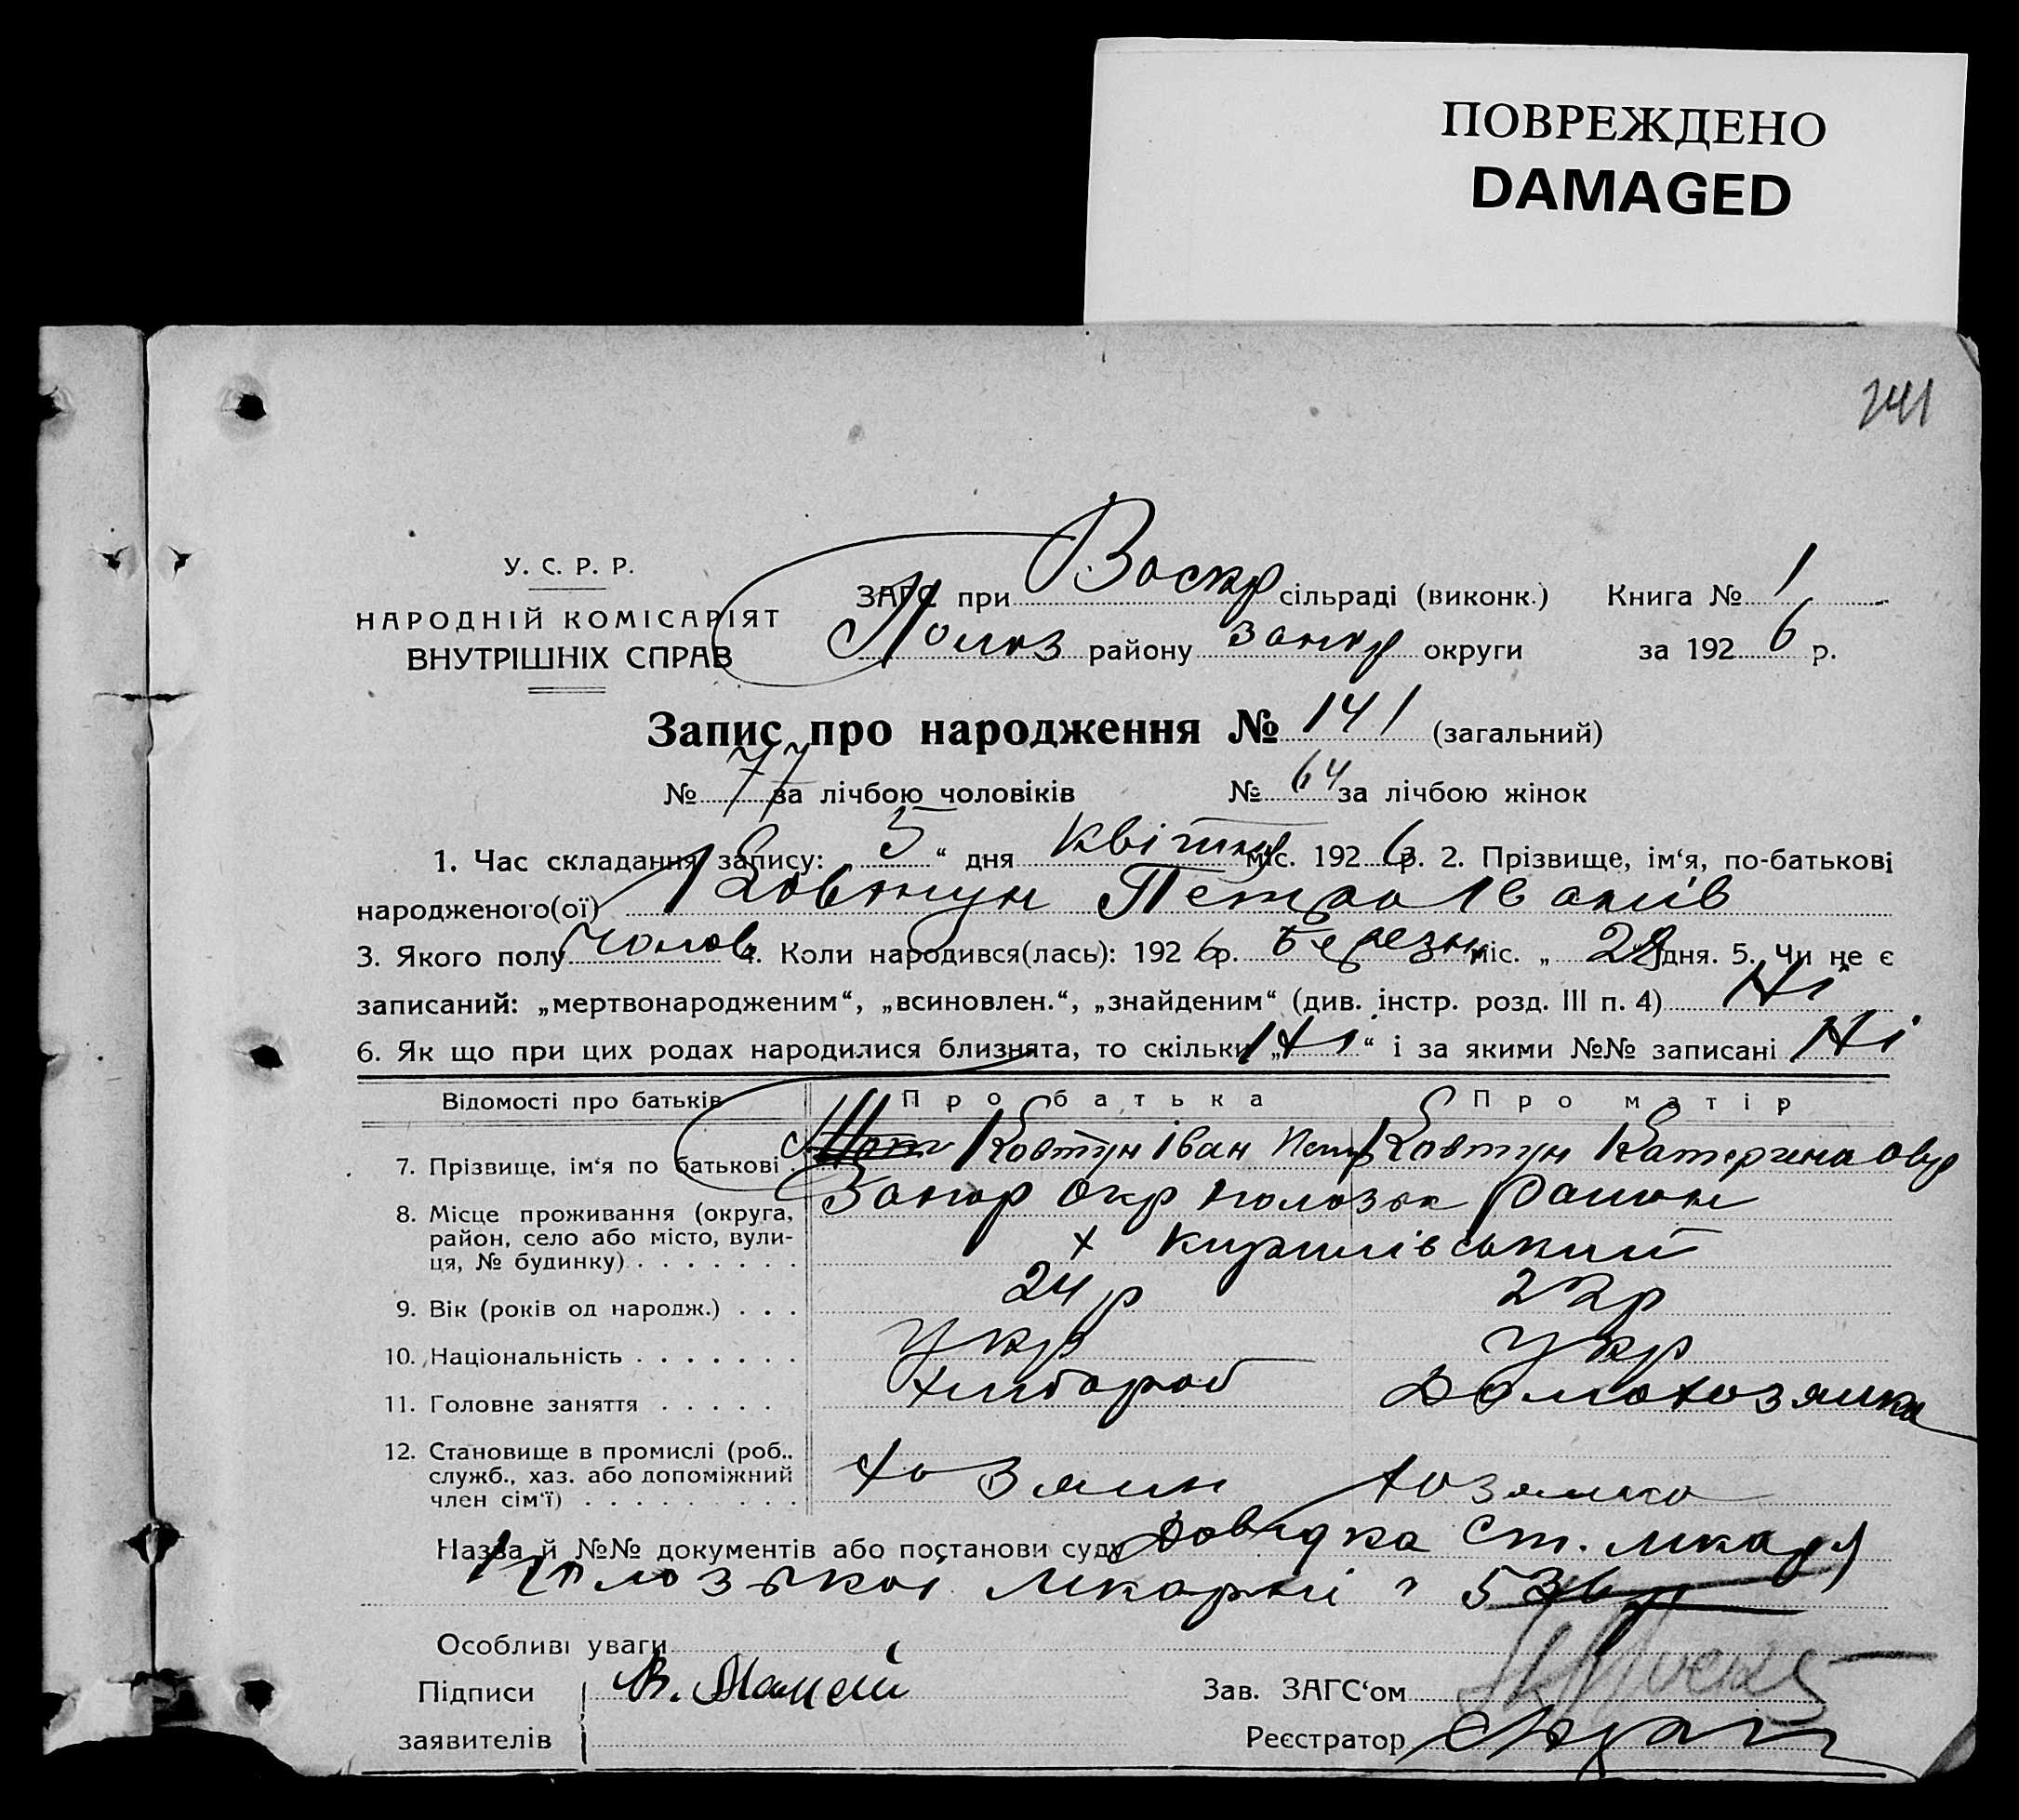 ПОВРЕЖДЕНО
DAMAGED
141
У. С. Р. Р.
НАРОДНІЙ КОМІСАРІЯТ
ВНУТРІШНІХ СПРАВ
ЗАГС при Воскр сільраді (виконк.) Книга № 1
Полоз району Запор округи за 1926 р.
Запис про народження № 141 (загальний)
№ 77 за лічбою чоловіків № 64 за лічбою жінок
1. Час складання запису: 5 “ дня Квітня міс. 1926 р. 2. Прізвище, ім‘я, по-батькові
народженого(ої) Ковтун Петро Іванів
3. Якого полу Чолов 4. Коли народився(лась): 1926 р. Березня міс. „ 28 дня. 5. Чи не є
записаний: „мертвонародженим“, „всиновлен.“, „знайденим“ (див. інстр. розд. III п. 4) Ні
6. Як що при цих родах народилися близнята, то скільки „Ні“ і за якими №№ записані Ні
Відомості про батьків Про батька Про матір
7. Прізвище, ім‘я по батькові . Ковтун Іван Петр Ковтун Катерина
8. Місце проживання (округа, Запор окр Полозьк район
район, село або місто, вули-
ця, № будинку) . . . . . . . х Кирилівський
9. Вік (років од народж.) . . . 24 р 22 р
10. Національність . . . . . . . Укр Укр
11. Головне заняття . . . . . Хлібороб Домохозяйка
12. Становище в промислі (роб..
служб., хаз. або допоміжний Хозяин хозяйка
член сім‘ї) . . . . . . . . .
Назва й №№ документів або постанови суду Довидка Ст. лікаря
Полозької лікарні 536
Особливі уваги
Підписи В. Зав. ЗАГС‘ом
заявителів Реєстратор